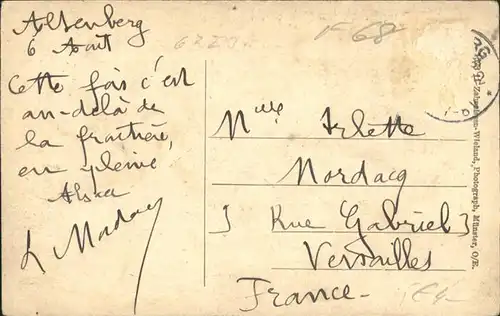 Altenberg
6 Aout
Cette fois c'est
au-delà de
la frontière,
en pleine
Alsace
L Mordacq
F 68
Mlle Arlette
Mordacq
3 Rue Gabriel 3
Versailles
France-
Wieland, Photograph, Münster, O/E.